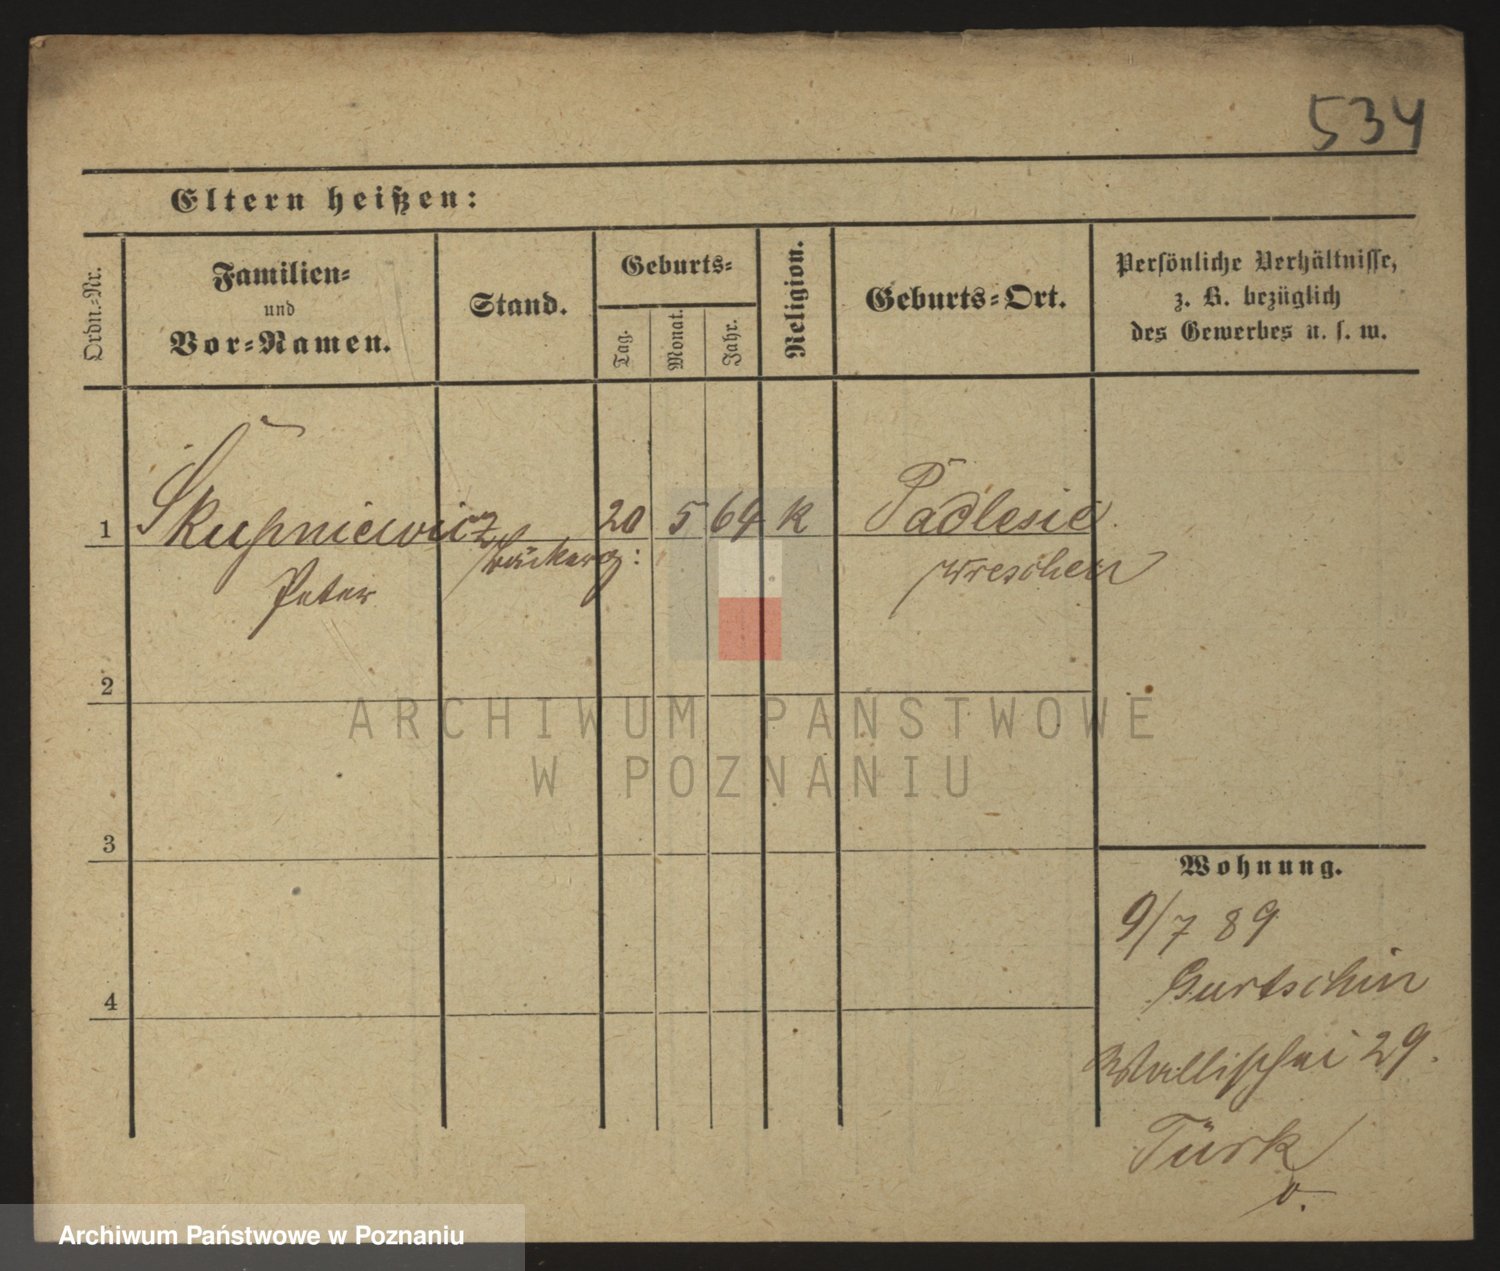 534
Eltern heißen:
Ordn.-Nr.
Familien-
und
Vor-Namen.
Stand.
Geburts-
Tag.
Monat.
Jahr.
Religion.
Geburts-Ort.
Persönliche Verhältnisse,
z. B. bezüglich
des Gewerbes u. s. w.
1 Skupniewicz 20 5 64 K Padlesie
Peter Bäckerg: Wreschen
2
3
4
Wohnung.
9/7 89
Gurtschin
Wallischei 29.
Türk
ARCHIWUM PAŃSTWOWE
W POZNANIU
Archiwum Państwowe w Poznaniu